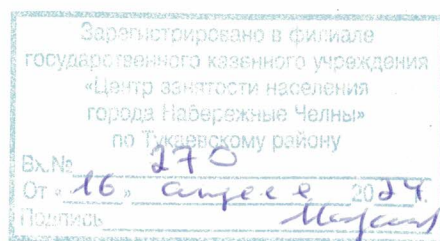 Зарегистрировано в филиале
государственного казенного учреждения
«Центр занятости населения
города Набережные Челны»
по Тукаевскому району
Вх.№ 270
От « 16 » апреля 2024.
Подпись